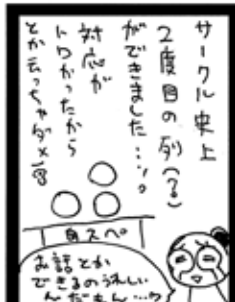 サークル史上
2度目の列(?)
ができました…!。
対応が
トロかったから
とか云っちゃダメ
自スペ
お話とか
できるのうれしい
んだもん…っ